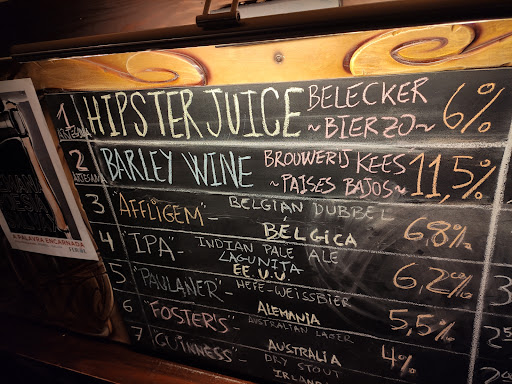 1 HIPSTER JUICE BELECKER 6%
ARTESANA ~BIERZO~
2 BARLEY WINE BROUWERIJ KEES 11,5%
ARTESANA ~PAISES BAJOS~
3 "AFFLIGEM"- BELGIAN DUBBEL 6,8%
BÉLGICA
4 "IPA"- INDIAN PALE ALE 6,2%
LAGUNITA
EE.U.U
5 "PAULANER"- HEFE-WEISSBIER 5,5%
ALEMANIA
6 "FOSTER'S- AUSTRALIAN LAGER 4%
AUSTRALIA
7 "GUINNESS"- DRY STOUT
IRLAND
A PALAVRA ENCARNADA